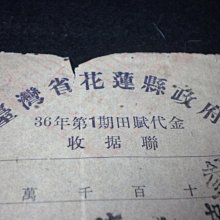 臺灣省花蓮縣政府
36年第1期田賦代金
收据聯
萬千百十